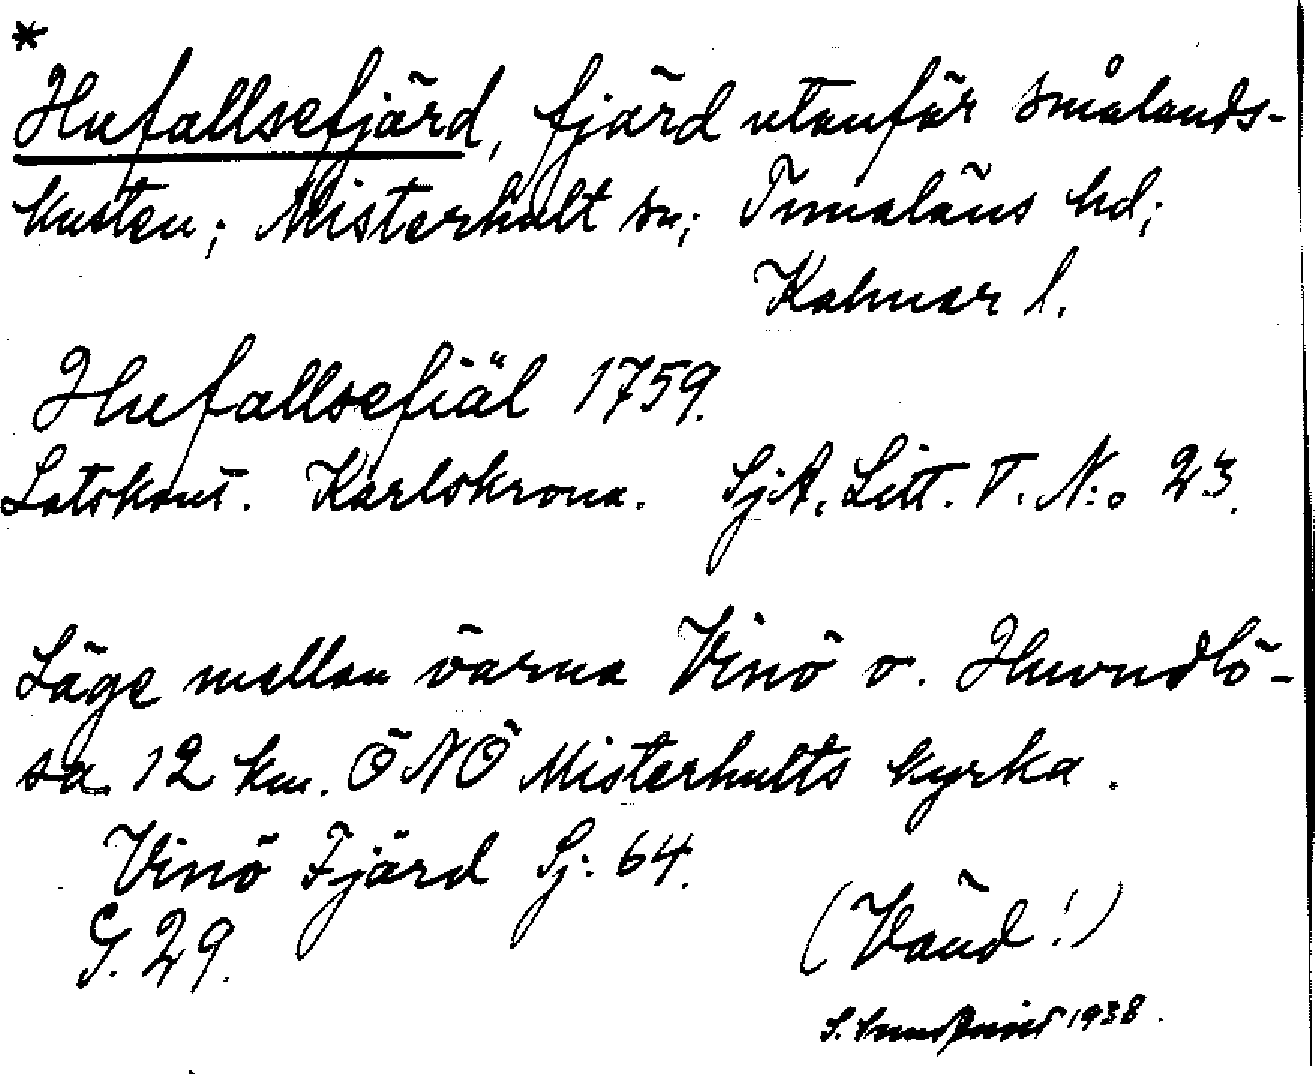 *
Hufallsefjärd, fjärd utanför Smålands-
kusten; Misterhult sn; Tunaläns hd;
Kalmar l.
Hufallsefiäl 1759.
Lotskont. Karlskrona. SjA. Litt. T. N:o 23.
Läge mellan öarna Vinö o. Hunndlö-
sa 12 km. ÖNÖ Misterhults kyrka.
Vinö Fjärd Sj: 64.
G. 29.
(Vänd!)
S. 1938.